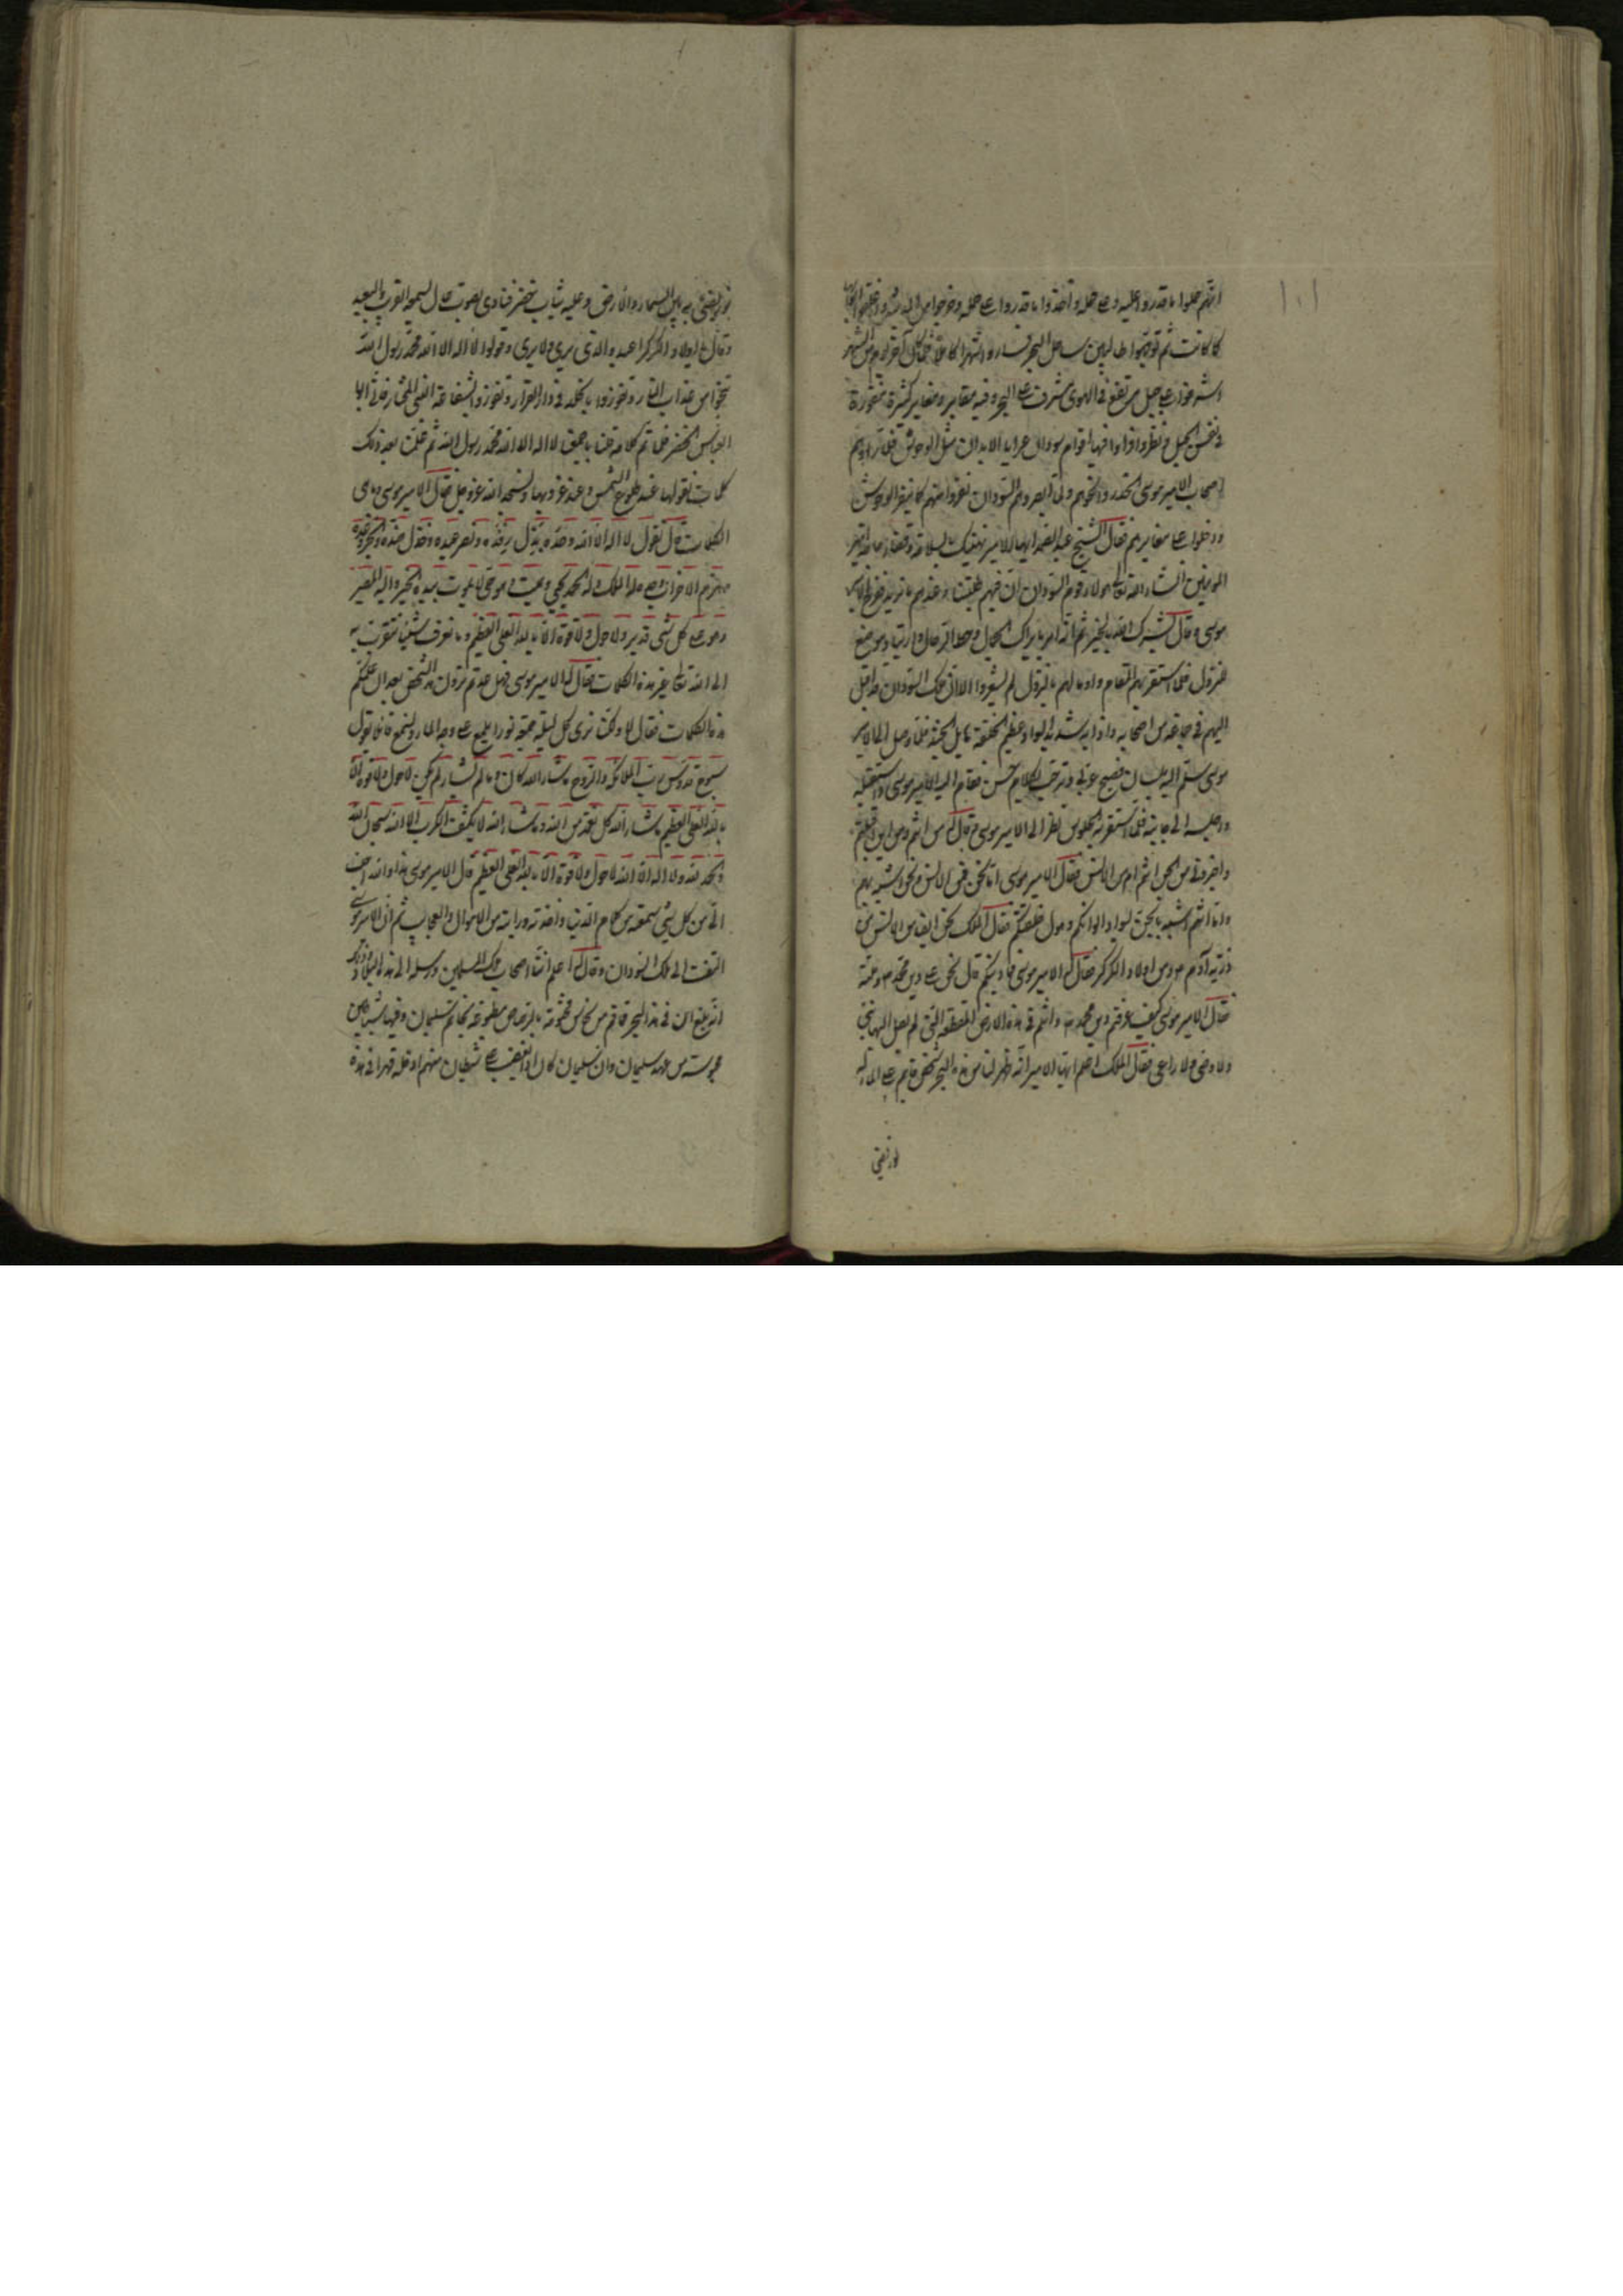 ١٠١
انهم حملوا ما قدروا عليه وعلى حمله واخذوا ما قدروا على حمله وخرجوا من المدينة وغلقوا الباب
كما كانت ثم توجهوا طالبين ساحل البحر فساروا شهرا كاملا فلما كان آخر يوم من الشهر
اشرفوا على جبل مرتفع في الهوى مشرف على البحر وفيه مغاير كثيرة منقورة
في نفس الجبل فنظروا واذا فيها اقوام سودان عرايا الابدان مثل الوحوش فلما رأوهم
اصحاب الامير موسى اخذوا ولما ابصروهم السودان نفروا منهم كما ينفر الوحوش
ودخلوا على مغايرهم فقال الشيخ عبد الصمد ايها الامير نهنيك بالسلامة وقضاء حاجة امير
المومنين انشاء الله تعالى هولاء قوم السودان ان فيهم طلبتنا وعندهم ما نريد ففرح الامير
موسى وقال بشرك الله بالخير ثم انه امر بابراك الجمال وحط الرحال وارتياد موضع
النزول فلما استقر بهم المقام وامر لهم بالنزول لم يشعروا الا وان ملك السودان قد اقبل
اليهم في جماعة من اصحابه واذا به شديد السواد عظيم الخلقة هايل الجثة فلما وصل الى الامير
موسى سلم اليه بلسان فصيح عربي وترحيب بكلام حسن فقام اليه الامير موسى واستقبله
واجلسه الى جانبه فلما استقر به الجلوس نظر الى الامير موسى وقال له من انتم ومن اين اقبلتم
واخبروني من الجن انتم ام من الانس فقال الامير موسى اما نحن فمن الانس ونحن اشبه بهم
واما انتم اشبه بالجن لسواد الوانكم وهول خلقتكم فقال الملك نحن ايضا من الانس من
ذرية آدم عم ومن اولاد الكركر فقال له الامير موسى فما دينكم قال نحن على دين محمد عم وملته
فقال الامير موسى كيف عرفتم دين محمد عم وانتم في هذه الارض المنقطعة التي لم يصل اليها نبي
ولا وصي ولا راعي فقال الملك اعلم ايها الامير انه ظهر لنا من هذه البحر شخص قايم على الماء له
نور يضئ
نور يضئ به بين السماء والارض وعليه ثياب خضر فنادى بصوت عال يسمعه القريب والبعيد
وقال يا اولاد الكركر اعبدوا الذي يرى ولا يرى وقولوا لا اله الا الله محمد رسول الله
تنجوا من عذاب النار وتفوزوا بالخلد في دار القرار وتفوزوا بشفاعة النبي المختار فاني انا ابو
العباس الخضر فلما تم كلامه قلنا باجمعنا لا اله الا الله محمد رسول الله ثم علمنا بعد ذلك
كلمات نقولها عند طلوع الشمس وعند غروبها ونسجد لله عز وجل فقال الامير موسى وما هي
الكلمات قال نقول لا اله الا الله وحده بذل رفده ونصر عبده وخذل ضده وانجز وعده
وهزم الاحزاب وحده له الملك وله الحمد يحيي ويميت وهو حي لا يموت بيده الخير واليه المصير
وهو على كل شئ قدير ولا حول ولا قوة الا بالله العلي العظيم وما نعرف شيئا نتقرب به
الى الله تعالى غير هذه الكلمات فقال له الامير موسى فهل عدتم ترون هذا الشخص بعد ان علمكم
هذه الكلمات فقال لا ولكنا نرى كل ليلة جمعة نورا يلمع على وجه الماء ونسمع قائلا يقول
سبوح قدوس رب الملائكة والروح ما شاء الله كان وما لم يشاء لم يكن لا حول ولا قوة الا
بالله العلي العظيم ما شاء الله كل نعمة من الله وما شاء الله لا يكشف الكرب الا الله سبحان الله
والحمد لله ولا اله الا الله لا حول ولا قوة الا بالله العلي العظيم قال الامير موسى هذا والله احب
الي من كل شئ سمعته من كلام الدنيا وما قد رايت من الاهوال والعجايب ثم ان الامير موسى
التفت الى ملك السودان وقال له اعلم اننا اصحاب ملك المسلمين ورسله الى هذه البلاد وذكر
انه بلغ ان في هذا البحر قماقم من نحاس مختومة بالرصاص مطبوعة بخاتم سليمان وفيها شياطين
محبوسة من عهد سليمان وان سليمان كان اذا غضب على شيطان منهم ادخله قهرا في هذه